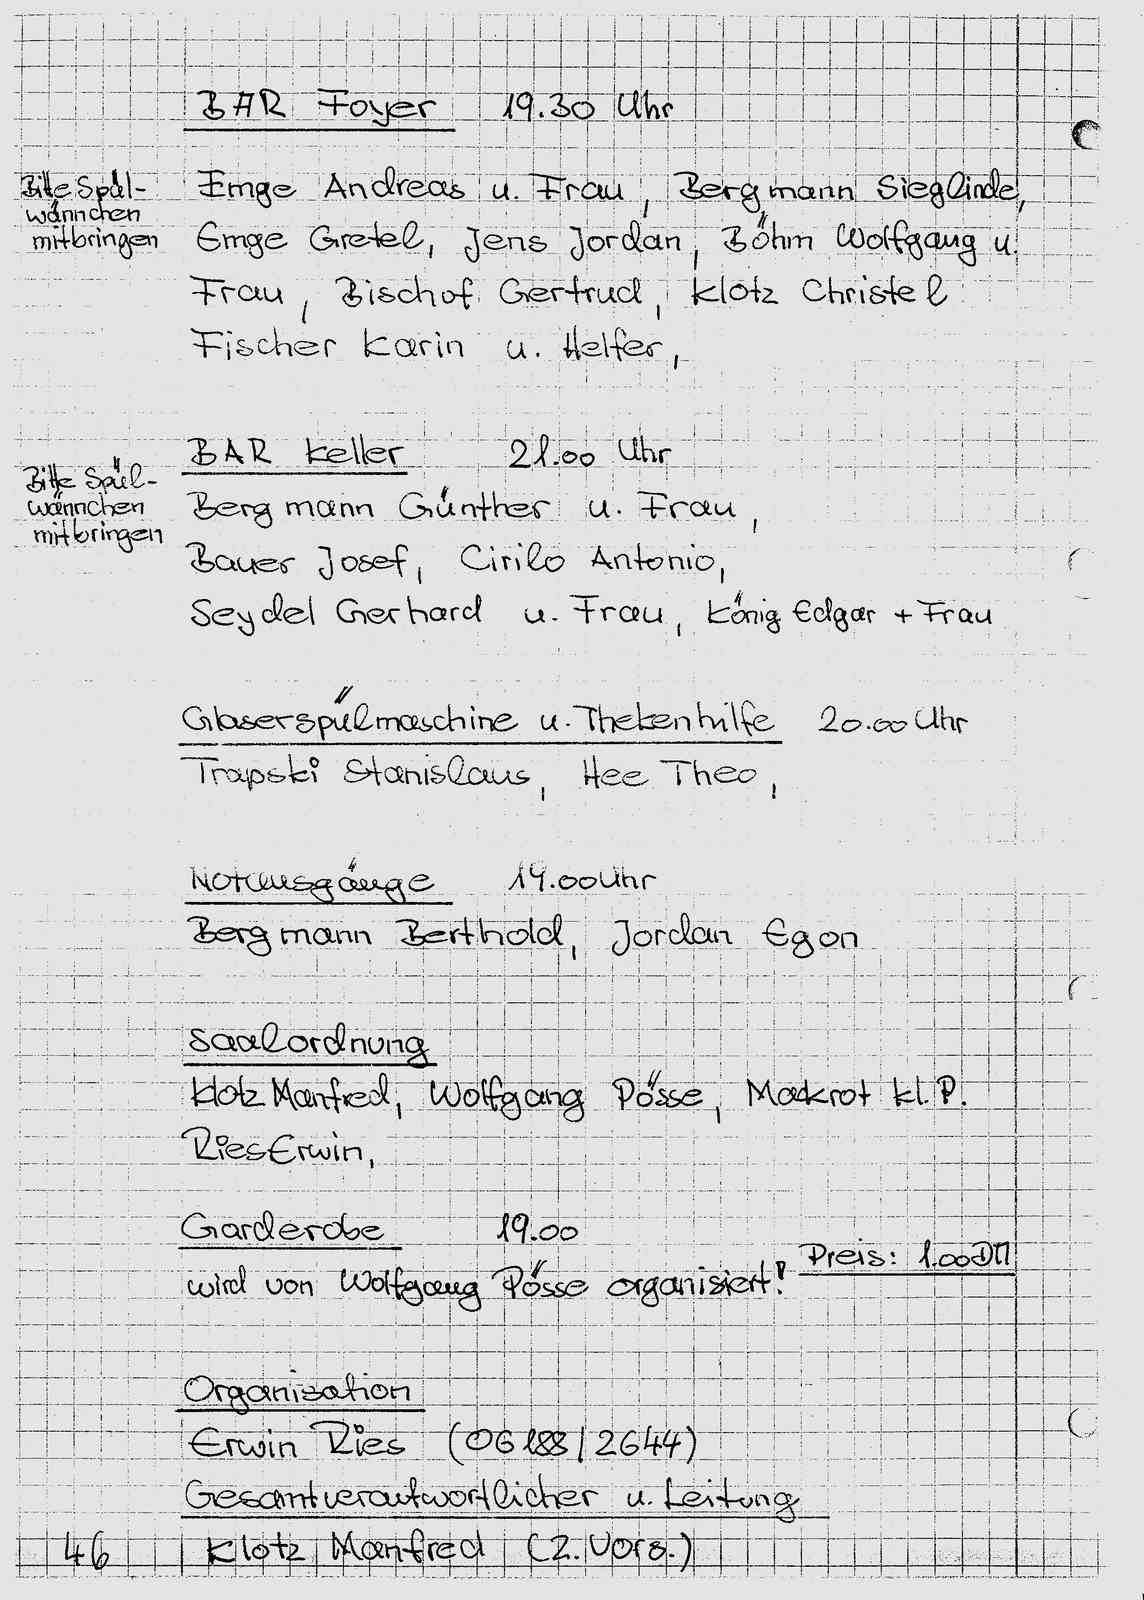 BAR Foyer 19.30 Uhr
Bitte Spül-
wännchen
mitbringen
Emge Andreas u. Frau, Bergmann Sieglinde,
Emge Gretel, Jens Jordan, Böhm Wolfgang u.
Frau, Bischof Gertrud, Klotz Christel
Fischer Karin u. Helfer,
BAR Keller 21.00 Uhr
Bitte Spül-
wännchen
mitbringen
Bergmann Günther u. Frau,
Bauer Josef, Cirilo Antonio,
Seydel Gerhard u. Frau, König Edgar + Frau
Gläserspülmaschine u. Thekenhilfe 20.00 Uhr
Trapski Stanislaus, Hee Theo,
Notausgänge 19.00 Uhr
Bergmann Berthold, Jordan Egon
Saalordnung
Klotz Manfred, Wolfgang Pösse, Makrot kl. P.
Ries Erwin,
Garderobe 19.00
Preis: 1.00 DM
wird von Wolfgang Pösse organisiert!
Organisation
Erwin Ries (06188/2644)
Gesamtverantwortlicher u. Leitung
46 Klotz Manfred (2. Vors.)